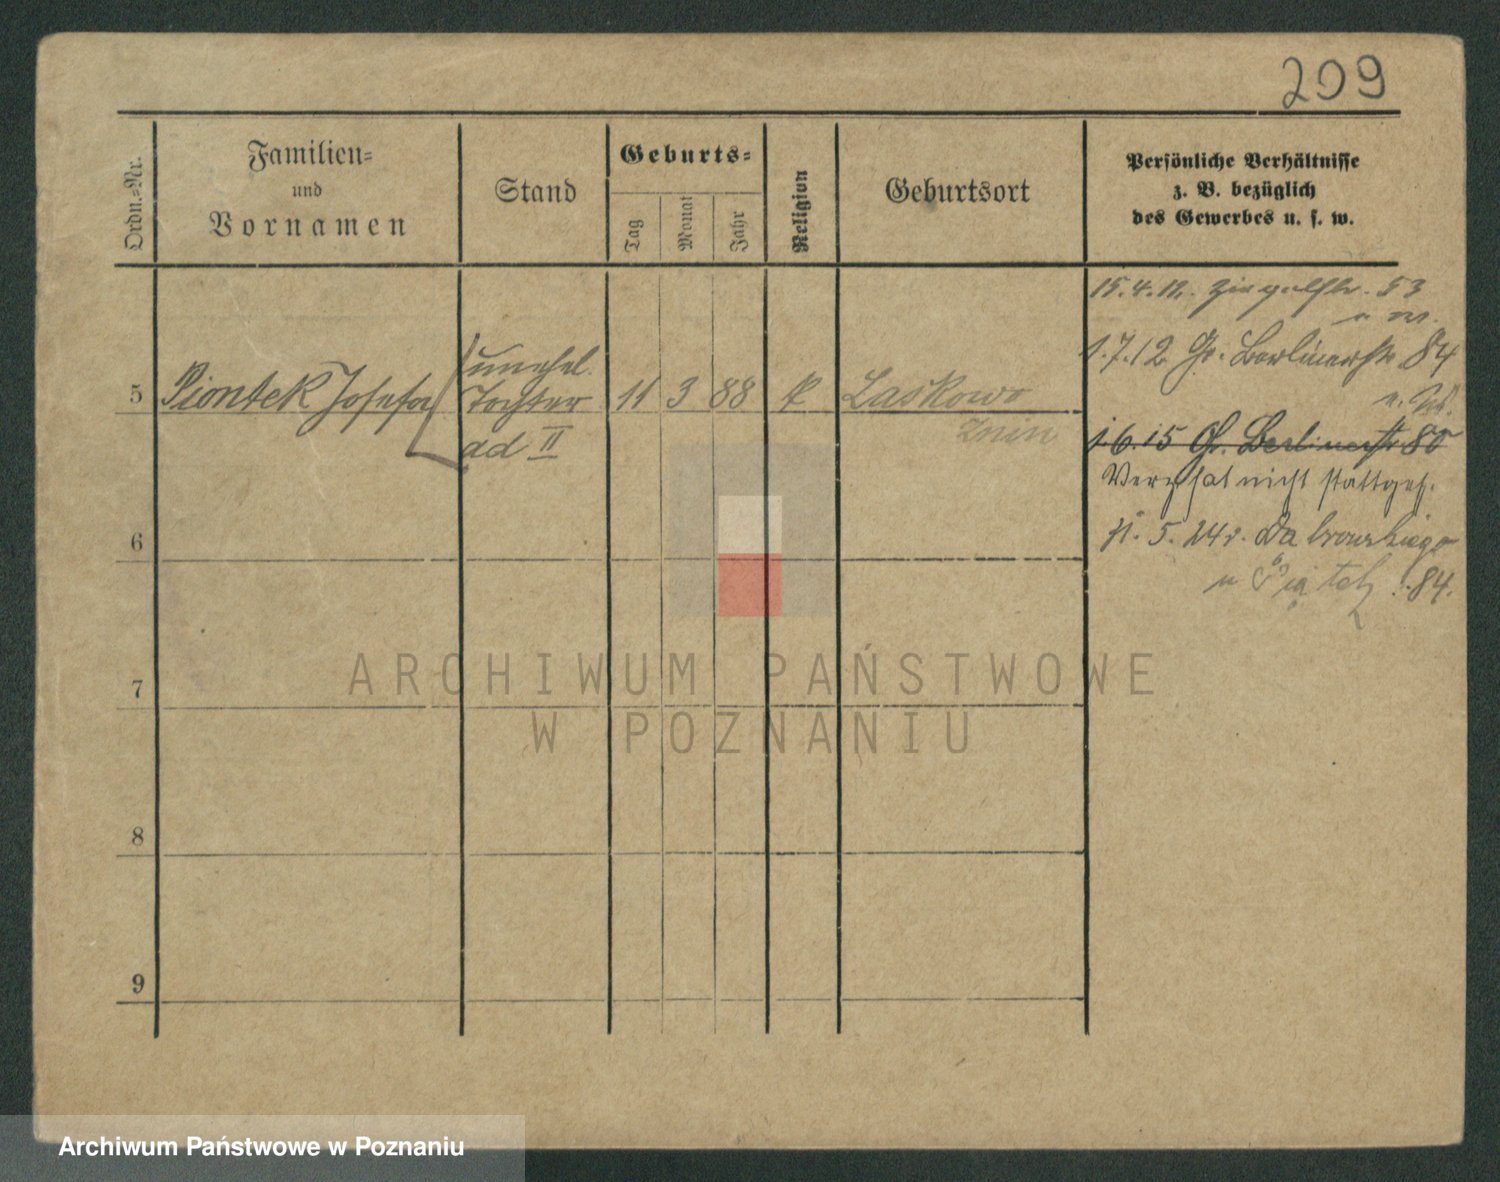 209
Ordn.-Nr.
Familien-
und
Vornamen
Stand
Geburts-
Tag
Monat
Jahr
Religion
Geburtsort
Persönliche Verhältnisse
z. B. bezüglich
des Gewerbes u. s. w.
15.4.12. Ziegelstr. 53
1.7.12 Gr. Berlinerstr. 84
5 Piontek Josefa unehel. Tochter ad II 11 3 88 k Laskowo
Znin
1.6.15 Gr. Berlinerstr 80
Verz hat nicht stattgef.
5. 24 r. Dabrowskiego
84.
6
7
8
9
ARCHIWUM PAŃSTWOWE
W POZNANIU
Archiwum Państwowe w Poznaniu